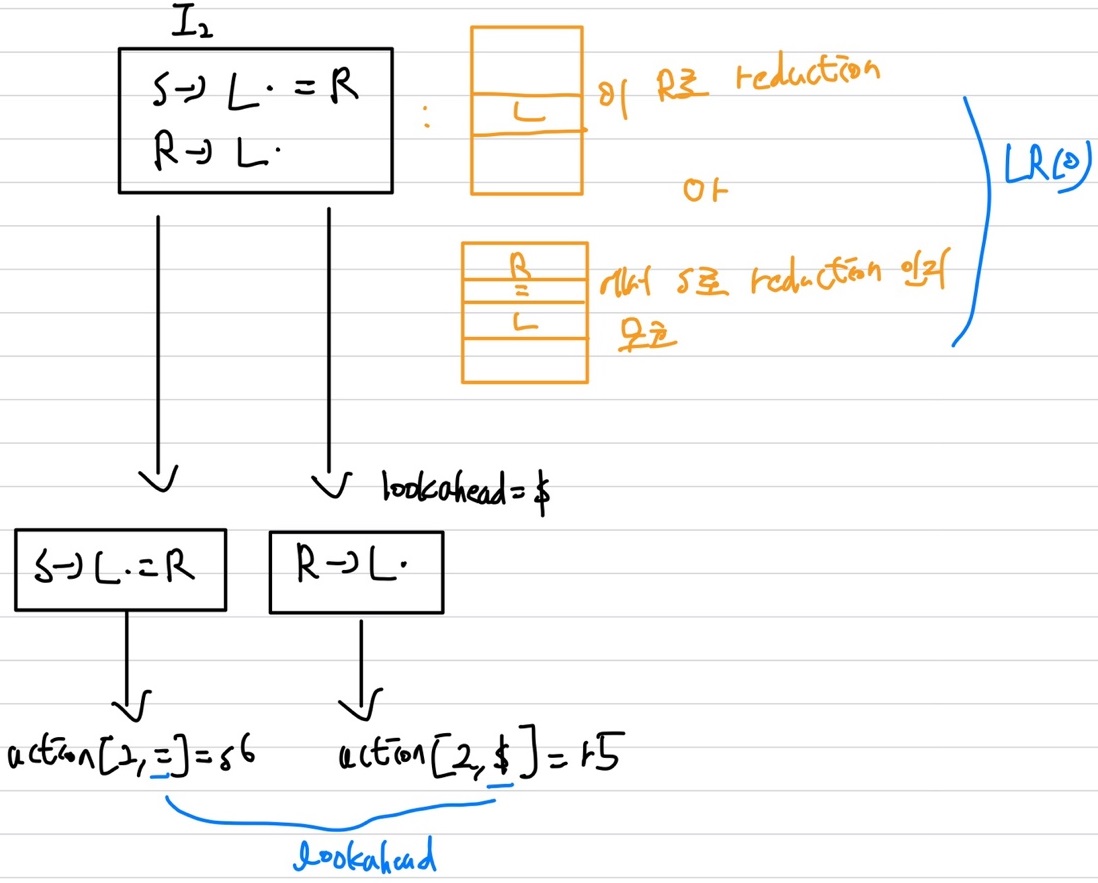 I₂
S→ L· = R
R→ L·
:
L
이 R로 reduction
or
R
=
L
에서 S로 reduction 인지
모름
LR(0)
lookahead = $
S→L·=R
R→L·
action[2,=]=s6
action[2,$]=r5
lookahead